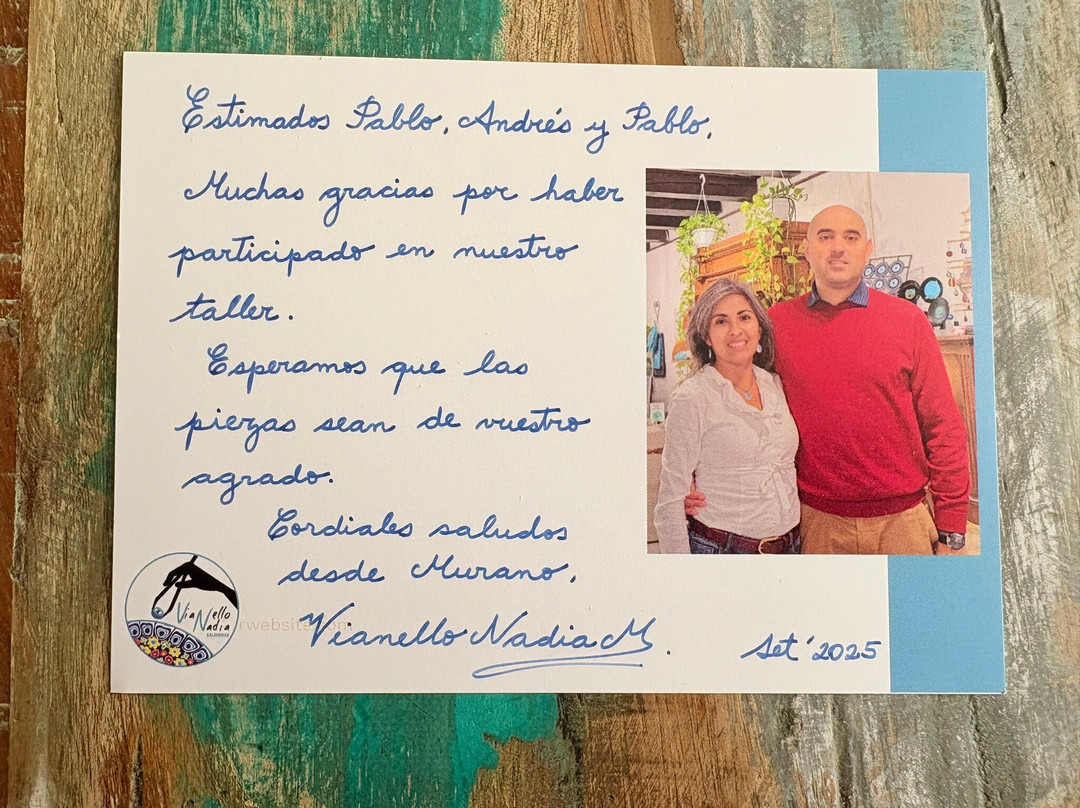 Estimados Pablo, Andrés y Pablo,
Muchas gracias por haber
participado en nuestro
taller.
Esperamos que las
piezas sean de vuestro
agrado.
Cordiales saludos
desde Murano,
Vianello Nadia M.
Set '2025
ViaNello
Nadia